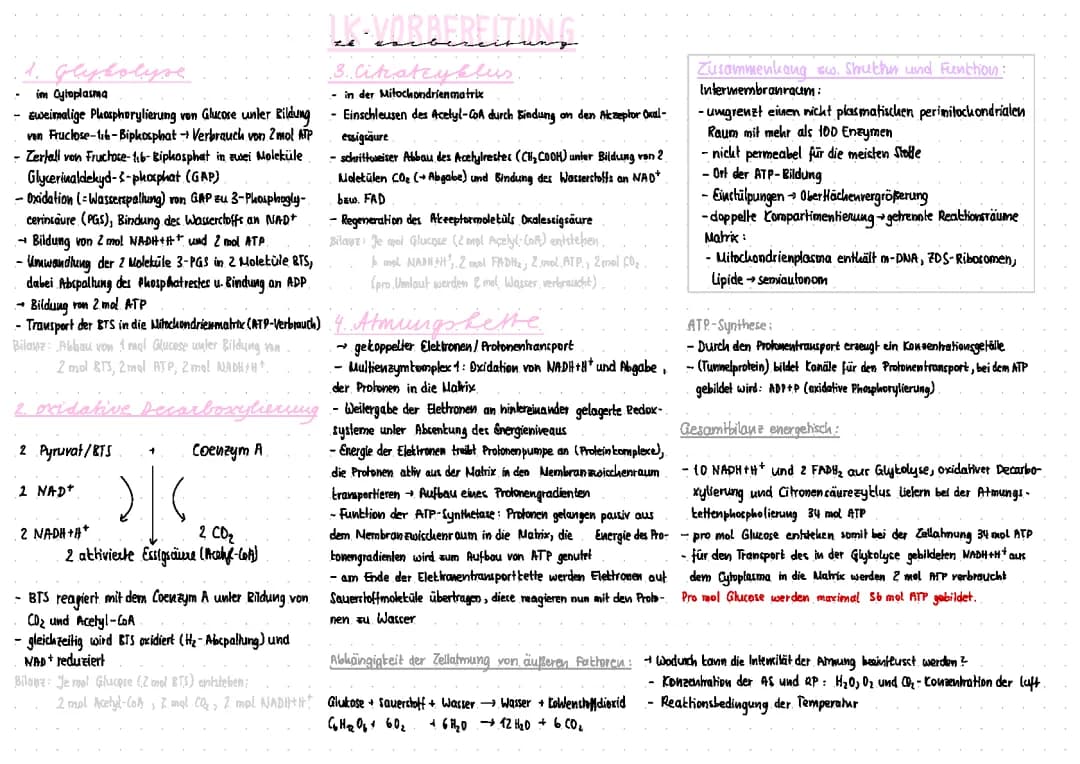 LK-VORBEREITUNG
lk-vorbereitung
1. Glykolyse
- im Cytoplasma
- zweimalige Phosphorylierung von Glucose unter Bildung
von Fructose-1,6-Biphosphat → Verbrauch von 2 mol ATP
- Zerfall von Fructose-1,6-Biphosphat in zwei Moleküle
Glycerinaldehyd-3-phosphat (GAP)
- Oxidation (=Wasserspaltung) von GAP zu 3-Phosphogly-
cerinsäure (PGS), Bindung des Wasserstoffs an NAD+
→ Bildung von 2 mol NADH+H+ und 2 mol ATP
- Umwandlung der 2 Moleküle 3-PGS in 2 Moleküle BTS,
dabei Abspaltung des Phosphatrestes u. Bindung an ADP
→ Bildung von 2 mol ATP
- Transport der BTS in die Mitochondrienmatrix (ATP-Verbrauch)
Bilanz: Abbau von 1 mol Glucose unter Bildung von
2 mol BTS, 2 mol ATP, 2 mol NADH+H+
2. oxidative Decarboxylierung
2 Pyruvat/BTS + Coenzym A
2 NAD+
2 NADH+H+ 2 CO₂
2 aktivierte Essigsäure (Acetyl-CoA)
- BTS reagiert mit dem Coenzym A unter Bildung von
CO₂ und Acetyl-CoA
- gleichzeitig wird BTS oxidiert (H₂-Abspaltung) und
NAD+ reduziert
Bilanz: Je mol Glucose (2 mol BTS) entstehen:
2 mol Acetyl-CoA, 2 mol CO₂, 2 mol NADH+H+
3. Citratzyklus
- in der Mitochondrienmatrix
- Einschleusen des Acetyl-CoA durch Bindung an den Akzeptor Oxal-
essigsäure
- schrittweiser Abbau des Acetylrestes (CH₃COOH) unter Bildung von 2
Molekülen CO₂ (→ Abgabe) und Bindung des Wasserstoffs an NAD+
bzw. FAD
- Regeneration des Akzeptormoleküls Oxalessigsäure
Bilanz: Je mol Glucose (2 mol Acetyl-CoA) entstehen
6 mol NADH+H+, 2 mol FADH₂, 2 mol ATP, 2 mol CO₂
(pro Umlauf werden 2 mol Wasser verbraucht)
4. Atmungskette
→ gekoppelter Elektronen/Protonentransport
- Multienzymkomplex 1: Oxidation von NADH+H+ und Abgabe
der Protonen in die Matrix
- Weitergabe der Elektronen an hintereinander gelagerte Redox-
systeme unter Absenkung des Energieniveaus
- Energie der Elektronen treibt Protonenpumpe an (Proteinkomplexe),
die Protonen aktiv aus der Matrix in den Membranzwischenraum
transportieren → Aufbau eines Protonengradienten
- Funktion der ATP-Synthetase: Protonen gelangen passiv aus
dem Membranzwischenraum in die Matrix, die Energie des Pro-
tonengradienten wird zum Aufbau von ATP genutzt
- am Ende der Elektronentransportkette werden Elektronen auf
Sauerstoffmoleküle übertragen, diese reagieren nun mit den Proto-
nen zu Wasser
Abhängigkeit der Zellatmung von äußeren Faktoren:
Glukose + Sauerstoff + Wasser → Wasser + Kohlenstoffdioxid
C₆H₁₂O₆ + 6O₂ + 6H₂O → 12H₂O + 6CO₂
Zusammenhang zw. Struktur und Funktion:
Intermembranraum:
- umgrenzt einen nicht plasmatischen perimitochondrialen
Raum mit mehr als 100 Enzymen
- nicht permeabel für die meisten Stoffe
- Ort der ATP-Bildung
- Einstülpungen → Oberflächenvergrößerung
- doppelte Kompartimentierung → getrennte Reaktionsräume
Matrix:
- Mitochondrienplasma enthält m-DNA, 70S-Ribosomen,
Lipide → semiautonom
ATP-Synthese:
- Durch den Protonentransport erzeugt ein Konzentrationsgefälle
- (Tunnelprotein) bildet Kanäle für den Protonentransport, bei dem ATP
gebildet wird: ADP+P (oxidative Phosphorylierung)
Gesamtbilanz energetisch:
- 10 NADH+H+ und 2 FADH₂ aus Glykolyse, oxidativer Decarbo-
xylierung und Citronensäurezyklus liefern bei der Atmungs-
kettenphospholierung 34 mol ATP
- pro mol Glucose entstehen somit bei der Zellatmung 34 mol ATP
- für den Transport des in der Glykolyse gebildeten NADH+H+ aus
dem Cytoplasma in die Matrix werden 2 mol ATP verbraucht
Pro mol Glucose werden maximal 36 mol ATP gebildet.
→ Wodurch kann die Intensität der Atmung beeinflusst werden?
- Konzentration der AS und RP: H₂O, O₂ und CO₂-Konzentration der Luft
- Reaktionsbedingung der Temperatur